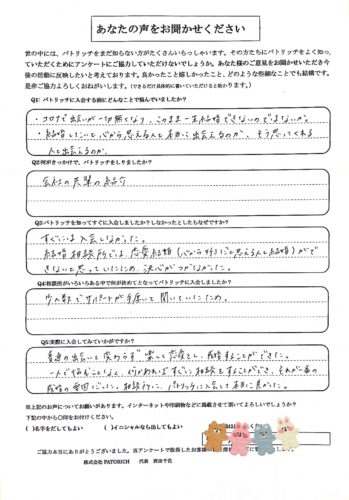 あなたの声をお聞かせください
世の中には、パトリッチをまだ知らない方がたくさんいらっしゃいます。その方たちにパトリッチをよく知っ
ていただくためにアンケートにご協力していただけないでしょうか。あなた様のご意見をお聞かせいただき今
後の活動に反映したいと考えております。良かったこと嬉しかったこと、どのような些細なことでも結構です。
是非ご協力よろしくおねがいします。(できるだけ具体的に書いていただけると助かります。)
Q1: パトリッチに入会する前にどんなことで悩んでいましたか?
・コロナで出会いが一切無くなり、このまま一生結婚できないのではないか。
・結婚したいと心から思える人と本当に出会えるのか、そう思ってくれる
人と出会えるのか。
Q2:何がきっかけで、パトリッチをしりましたか?
会社の先輩の紹介
Q3: パトリッチを知ってすぐに入会しましたか?しなかったとしたらなぜですか?
すぐには入会しなかった。
結婚相談所では、恋愛結婚(心から好きだと思える人と結婚)がで
きないと思っていたため、決心がつかなかった。
Q4:相談所がいろいろある中で何が決めてとなってパトリッチに入会しましたか?
少人数でサポートが手厚いと聞いていたため。
Q5:実際に入会してみていかがですか?
普通の出会いと変わらず楽しく恋愛をし、成婚することができた。
一人で悩むことなく、何かあればすぐに相談をすることができ、それが一番の
成婚の要因でした。相談所に、パトリッチに入会して本当に良かった。
※上記のお声についてお願いがあります。インターネットや印刷物などに掲載させて頂いてよろしいでしょうか?
下記の中から〇印をお付けください。
( )名字をだしてもよい ( )イニシャルなら出してもよい
ご協力本当にありがとうございます。当アンケートで取得したお客様の
株式会社 PATORICH 代表 西田千花